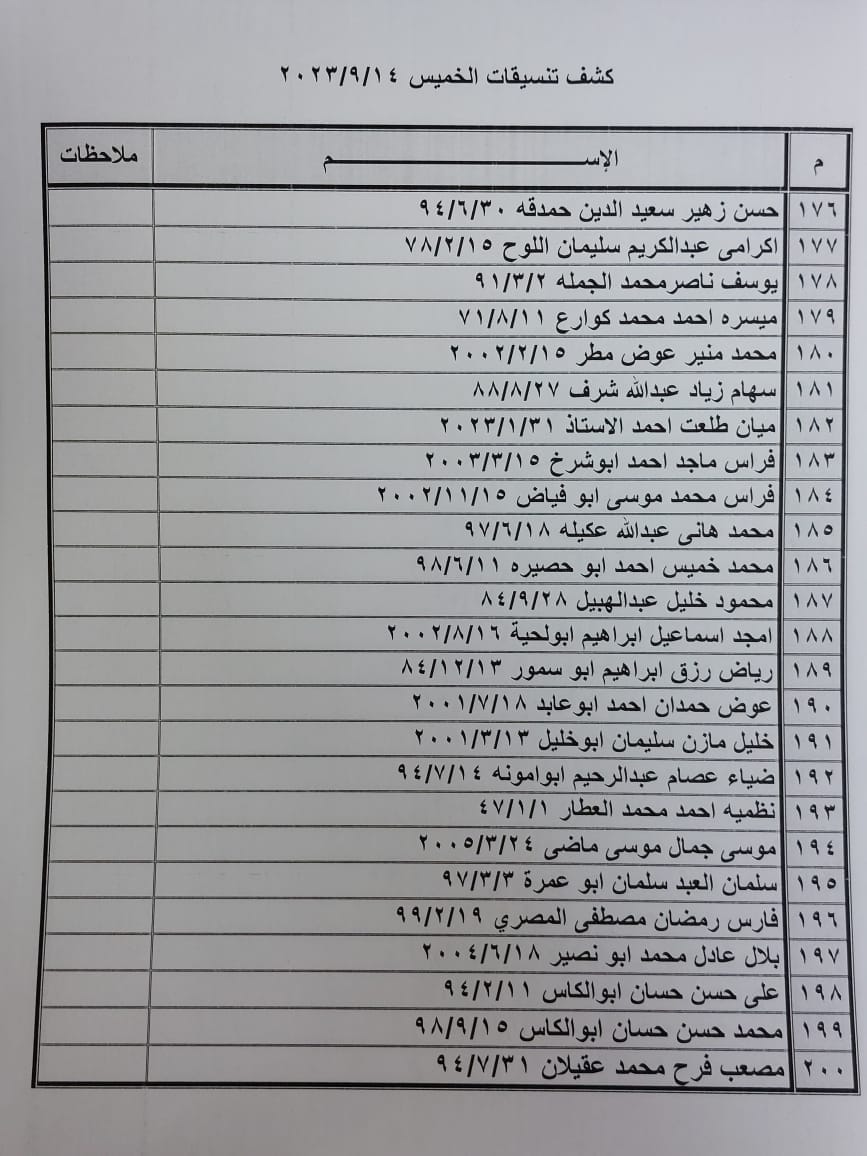 كشف تنسيقات الخميس ٢٠٢٣/٩/١٤
م الإســـــــم ملاحظات
١٧٦ حسن زهير سعيد الدين حمدقه ٩٤/٦/٣٠
١٧٧ اكرامى عبدالكريم سليمان اللوح ٧٨/٢/١٥
١٧٨ يوسف ناصرمحمد الجمله ٩١/٣/٢
١٧٩ ميسره احمد محمد كوارع ٧١/٨/١١
١٨٠ محمد منير عوض مطر ٢٠٠٢/٢/١٥
١٨١ سهام زياد عبدالله شرف ٨٨/٨/٢٧
١٨٢ ميان طلعت احمد الاستاذ ٢٠٢٣/١/٣١
١٨٣ فراس ماجد احمد ابوشرخ ٢٠٠٣/٣/١٥
١٨٤ فراس محمد موسى ابو فياض ٢٠٠٢/١١/١٥
١٨٥ محمد هانى عبدالله عكيله ٩٧/٦/١٨
١٨٦ محمد خميس احمد ابو حصيره ٩٨/٦/١١
١٨٧ محمود خليل عبدالهبيل ٨٤/٩/٢٨
١٨٨ امجد اسماعيل ابراهيم ابولحية ٢٠٠٢/٨/١٦
١٨٩ رياض رزق ابراهيم ابو سمور ٨٤/١٢/١٣
١٩٠ عوض حمدان احمد ابوعابد ٢٠٠١/٧/١٨
١٩١ خليل مازن سليمان ابوخليل ٢٠٠١/٣/١٣
١٩٢ ضياء عصام عبدالرحيم ابوامونه ٩٤/٧/١٤
١٩٣ نظميه احمد محمد العطار ٤٧/١/١
١٩٤ موسى جمال موسى ماضى ٢٠٠٥/٣/٢٤
١٩٥ سلمان العبد سلمان ابو عمرة ٩٧/٣/٣
١٩٦ فارس رمضان مصطفى المصري ٩٩/٢/١٩
١٩٧ بلال عادل محمد ابو نصير ٢٠٠٤/٦/١٨
١٩٨ على حسن حسان ابوالكاس ٩٤/٢/١١
١٩٩ محمد حسن حسان ابوالكاس ٩٨/٩/١٥
٢٠٠ مصعب فرح محمد عقيلان ٩٤/٧/٣١